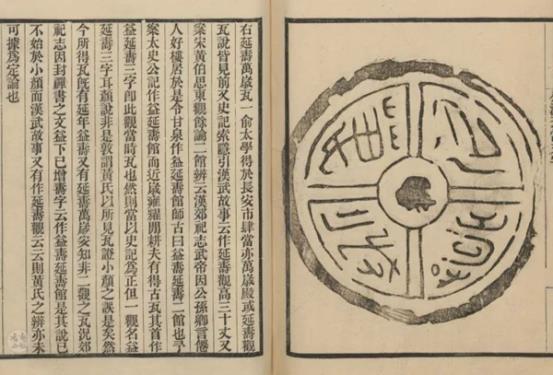 右延壽萬歲瓦一俞太學得於長安市肆當亦萬歲殿或延壽觀
瓦說皆見前又史記索隱引漢武故事云作延壽觀高三十丈又
案宋黃伯思東觀餘論二館辨云漢郊祀志武帝因公孫卿言僊
人好樓居於是令甘泉作益延壽館師古曰益壽延壽二館也予
案太史公記作益延壽館而近歲雍耀閒耕夫有得古瓦其首作
益延壽三字即此觀當時瓦也然則當以史記為正但一觀名益
延壽三字耳顏說非是敦謂黃氏以所見瓦證小顏之誤是矣然
今所得瓦既有延年益壽又有延壽萬歲安知非二觀之瓦況郊
祀志因封禪書之文益下已增壽字云作益壽延壽館是其說已
不始於小顏而漢武故事又有作延壽觀云云則黃氏之辨亦未
可據為定論也